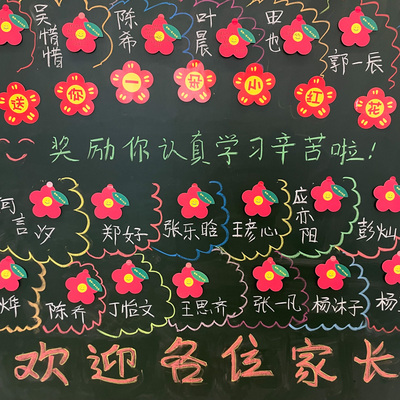 吴惜惜 陈希 叶晨 田也 郭一辰
送你一朵小红花
奖励你认真学习辛苦啦!
言汐 郑好 张乐晗 王彦心 应亦阳 彭灿
陈乔 丁怡文 王思齐 张一凡 杨沐子 杨
欢迎各位家长